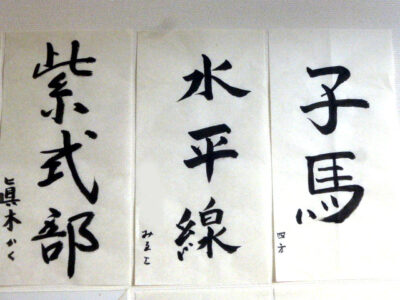 子馬
四方
水平線
みゑこ
紫式部
眞木かく